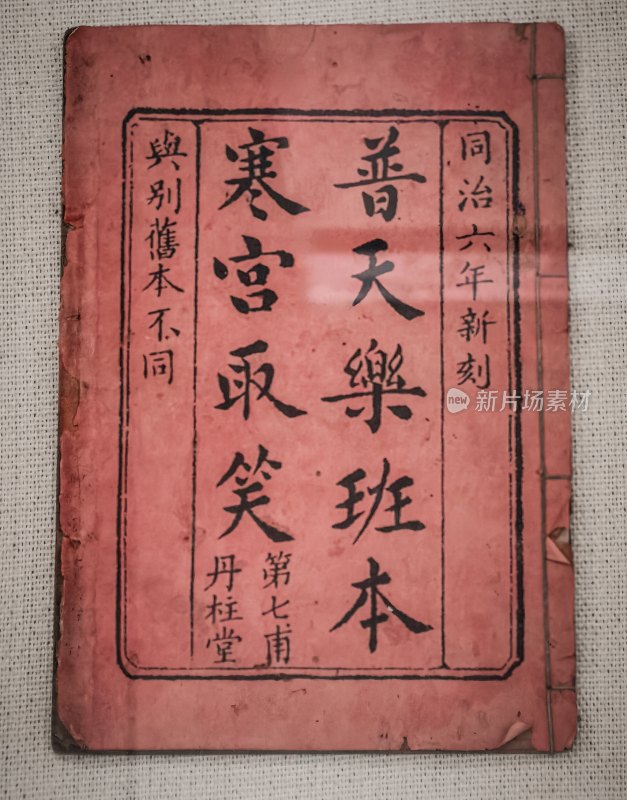 同治六年新刻
普天樂班本
寒宮取笑
第七甫
丹柱堂
與別舊本不同
new 新片场素材